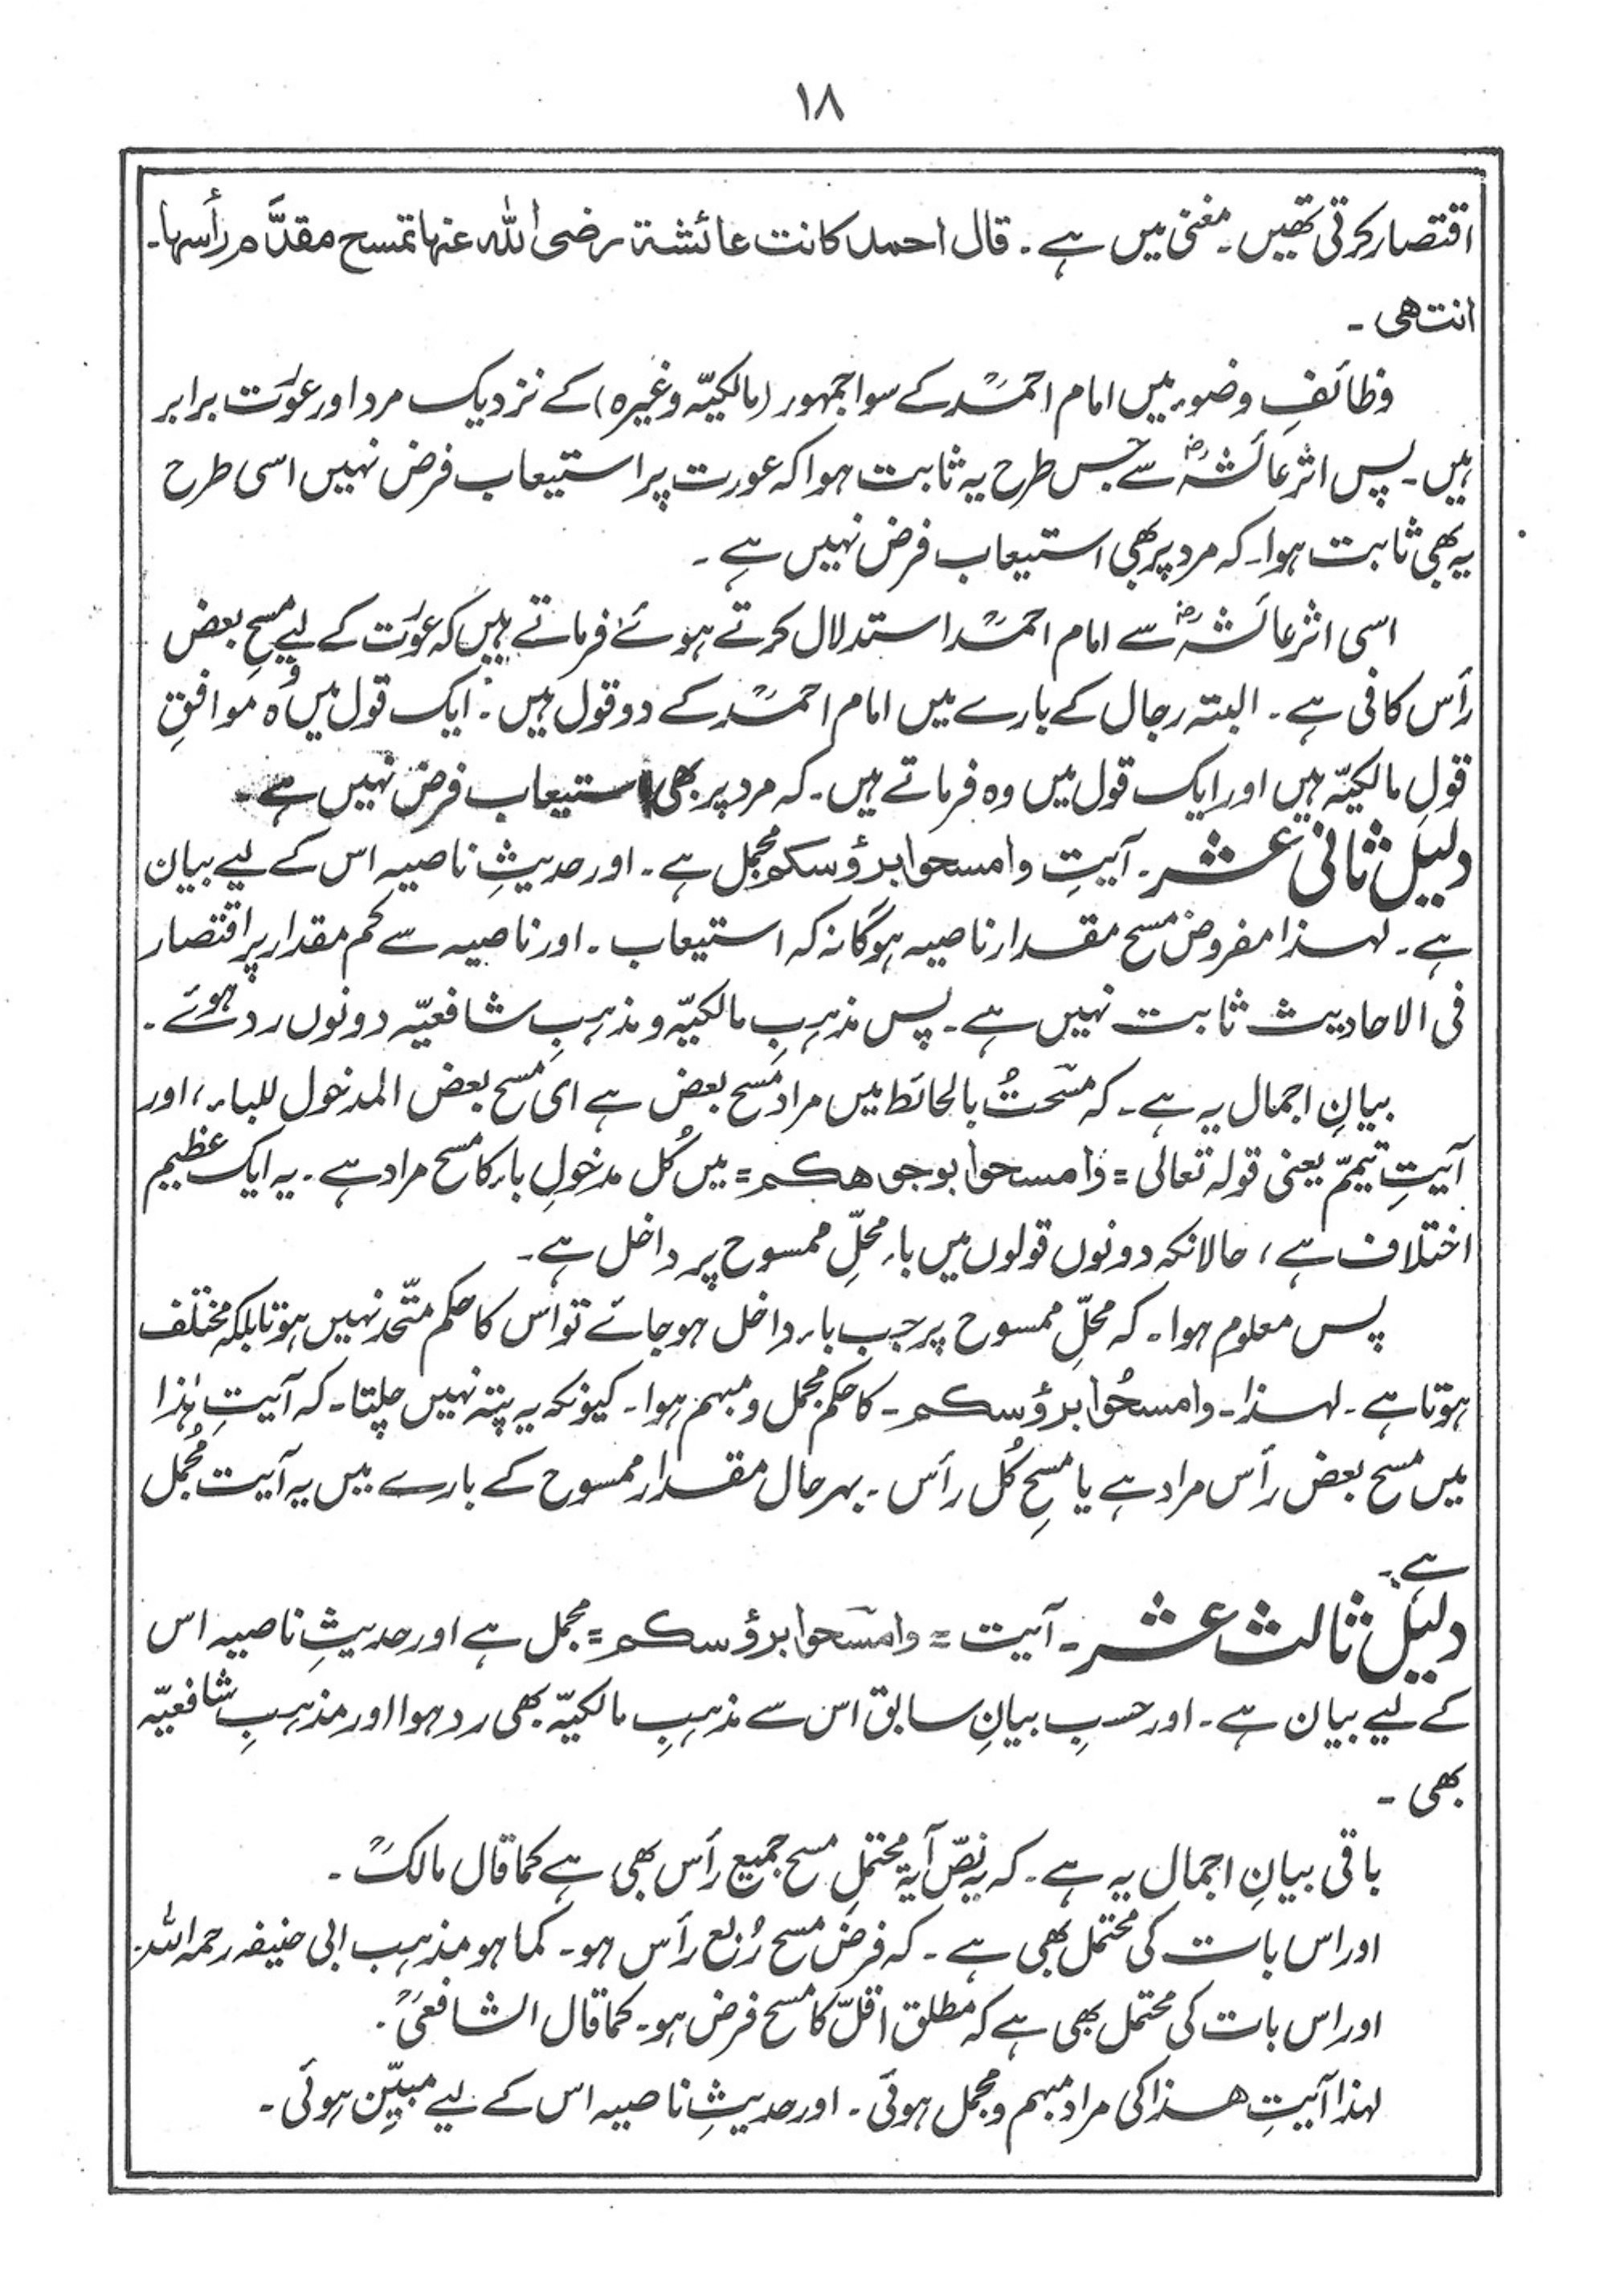 ۱۸
اقتصار کرتی تھیں۔ مغنی میں ہے۔ قال احمد کانت عائشة رضی اللہ عنہا تمسح مقدَّم رأسہا۔
انتھی ۔
وظائفِ وضوء میں امام احمدؒ کے سوا جمہور (مالکیّہ وغیرہ) کے نزدیک مرد اور عورت برابر
ہیں۔ پس اثرِ عائشہؓ سے جس طرح یہ ثابت ہوا کہ عورت پر استیعاب فرض نہیں اسی طرح
یہ بھی ثابت ہوا۔ کہ مرد پر بھی استیعاب فرض نہیں ہے ۔
اسی اثرِ عائشہؓ سے امام احمدؒ استدلال کرتے ہوئے فرماتے ہیں کہ عورت کے لیے مسحِ بعض
رأس کافی ہے ۔ البتہ رجال کے بارے میں امام احمدؒ کے دو قول ہیں ۔ ایک قول میں وہ موافقِ
قولِ مالکیّہ ہیں اور ایک قول میں وہ فرماتے ہیں۔ کہ مرد پر بھی استیعاب فرض نہیں ہے ۔
دلیل ثانی عشر ۔ آیتِ وامسحوا برؤسکم مجمل ہے ۔ اور حدیثِ ناصیہ اس کے لیے بیان
ہے ۔ لہذا مفروض مسح مقدار ناصیہ ہوگا نہ کہ استیعاب ۔ اور ناصیہ سے کم مقدار پر اقتصار
فی الاحادیث ثابت نہیں ہے ۔ پس مذہبِ مالکیّہ و مذہبِ شافعیّہ دونوں رد ہوئے ۔
بیانِ اجمال یہ ہے ۔ کہ مسَحتُ بالحائط میں مراد مسح بعض ہے ای مسح بعض المدخول للباء، اور
آیتِ تیمّم یعنی قولہ تعالی = وامسحوا بوجوھکم = میں کُل مدخولِ باء کا مسح مراد ہے ۔ یہ ایک عظیم
اختلاف ہے ، حالانکہ دونوں قولوں میں باء محلِّ ممسوح پر داخل ہے ۔
پس معلوم ہوا ۔ کہ محلِّ ممسوح پر جب باء داخل ہوجائے تو اس کا حکم متّحد نہیں ہوتا بلکہ مختلف
ہوتا ہے ۔ لہذا ۔ وامسحُوا برؤسکم ۔ کا حکم مجمل و مبہم ہوا ۔ کیونکہ یہ پتہ نہیں چلتا ۔ کہ آیتِ ہٰذا
میں مسح بعض رأس مراد ہے یا مسحِ کُل رأس ۔ بہرحال مقدار ممسوح کے بارے میں یہ آیت مُجمل
ہے ۔
دلیل ثالث عشر ۔ آیت = وامسَحوا برؤسکم = مجمل ہے اور حدیثِ ناصیہ اس
کے لیے بیان ہے ۔ اور حسبِ بیانِ سابق اس سے مذہبِ مالکیّہ بھی رد ہوا اور مذہبِ شافعیّہ
بھی ۔
باقی بیانِ اجمال یہ ہے ۔ کہ یہ نصّ آیۃ محتملِ مسح جمیع رأس بھی ہے کما قال مالکؒ ۔
اور اس بات کی محتمل بھی ہے ۔ کہ فرض مسح رُبع رأس ہو ۔ کما ہو مذہب ابی حنیفہ رحمہ اللہ ۔
اور اس بات کی محتمل بھی ہے کہ مطلق اقلّ کا مسح فرض ہو ۔ کما قال الشافعیؒ ۔
لہذا آیتِ ھذا کی مراد مبہم و مجمل ہوئی ۔ اور حدیثِ ناصیہ اس کے لیے مبیّن ہوئی ۔